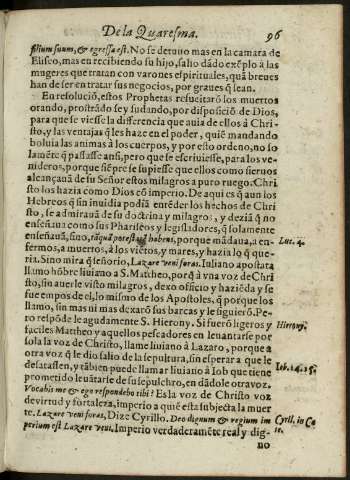 De la Quaresma. 96
filium suum, & egressa est. No se detuuo mas en la camara de
Eliseo, mas en recibiendo su hijo, salio dãdo exẽplo à las
mugeres que tratan con varones espirituales, quã breues
han de ser en tratar sus negocios, por graues q̃ sean.
En resoluciõ, estos Prophetas resucitarõ los muertos
orando, prostrãdo se y sudando, por disposiciõ de Dios,
para que se viesse la differencia que auia de ellos à Chri-
sto, y las ventajas q̃ les haze en el poder, quiẽ mandando
boluia las animas à los cuerpos, y por esto ordeno, no so
lamẽte q̃ passasse ansi, pero que se escriuiesse, para los ve-
nideros, porque siẽpre se supiesse que ellos como sieruos
alcançauã de su Señor estos milagros a puro ruego. Chri
sto los hazia como Dios cõ imperio. De aqui es q̃ aun los
Hebreos q̃ sin inuidia podiã entẽder los hechos de Chri
sto, se admirauã de su doctrina y milagros, y deziã q̃ no
enseñaua como sus Phariseos y legisladores, q̃ solamente
enseñauã, sino, tãquã potestatẽ habens, porque mãdaua, a en-
fermos, a muertos, à los viẽtos, y mares, y hazia lo q̃ que-
ria. Sino mira q̃ señorio, Lazare veni foras. Iuliano apostata
llamo hõbre liuiano a S. Mattheo, porq̃ à vna voz de Chri
sto, sin auerle visto milagros, dexo officio y haziẽda y se
fue empos de el, lo mismo de los Apostoles, q̃ porque los
llamo, sin mas ni mas dexarõ sus barcas y le siguierõ. Pe-
ro respõde le agudamente S. Hierony. Si fuerõ ligeros y
faciles Mattheo y aquellos pescadores en leuantarse por
sola la voz de Christo, llame liuiano à Lazaro, porque a
otra voz q̃ le dio salio de la sepultura, sin esperar a que le
desatassen, y tãbien puede llamar liuiano à Iob que tiene
prometido leuãtarle de su sepulchro, en dãdole otra voz.
Vocabis me & ego respondebo tibi? Es la voz de Christo voz
de virtud y fortaleza, imperio a quiẽ esta subjecta la muer
te. Lazare veni foras, Dize Cyrillo. Deo dignum & regium im
perium est Lazare veni. Imperio verdaderamẽte real y dig-
no
Luc. 4.
Hierony.
Iob. 14. 15.
Cyrill. in Ca
te.